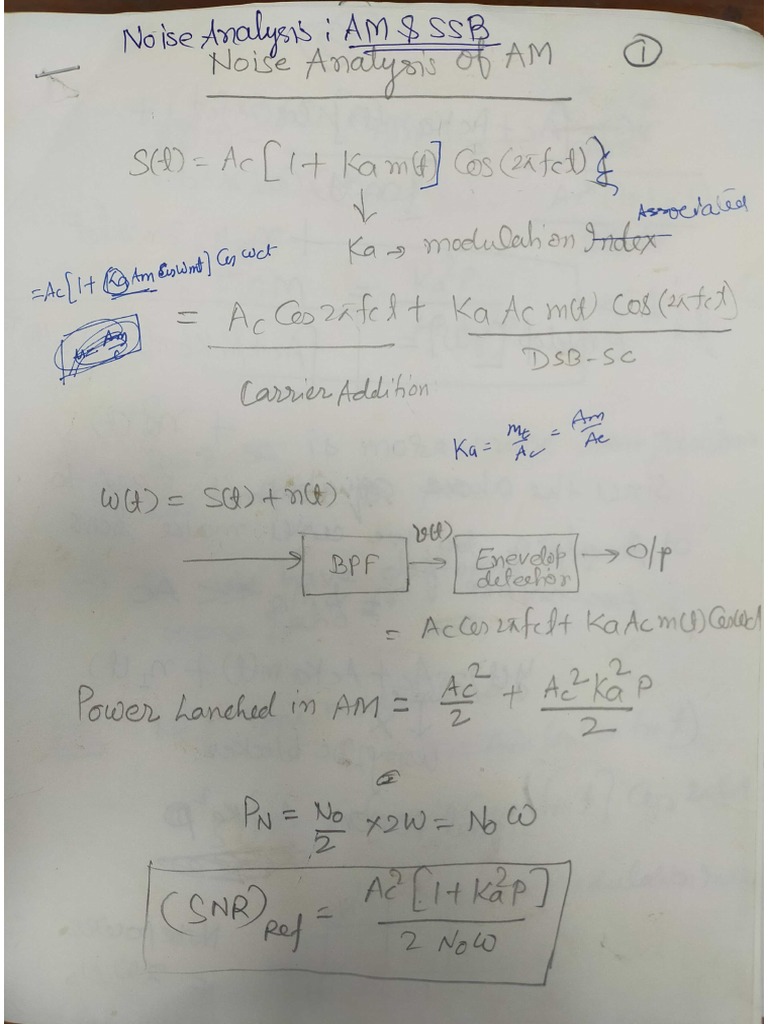 Noise Analysis : AM & SSB
Noise Analysis Of AM
①
S(t) = Ac [1 + Ka m(t)] Cos (2πfct)
↓
Ka → modulation Index
Associated
= Ac [1 + Ka Am Cos wmt] Cos wct
= Ac Cos 2πfct + Ka Ac m(t) Cos (2πfct)
DSB-SC
Carrier Addition
Ka = mt/Ac = Am/Ac
w(t) = S(t) + n(t)
v(t)
BPF → Enevelop detection → O/p
= Ac Cos 2πfct + Ka Ac m(t) Cos wct
Power Lanched in AM = Ac²/2 + Ac² Ka² P/2
PN = No/2 × 2W = No W
(SNR)Ref = Ac² [1 + Ka² P]/2 No W